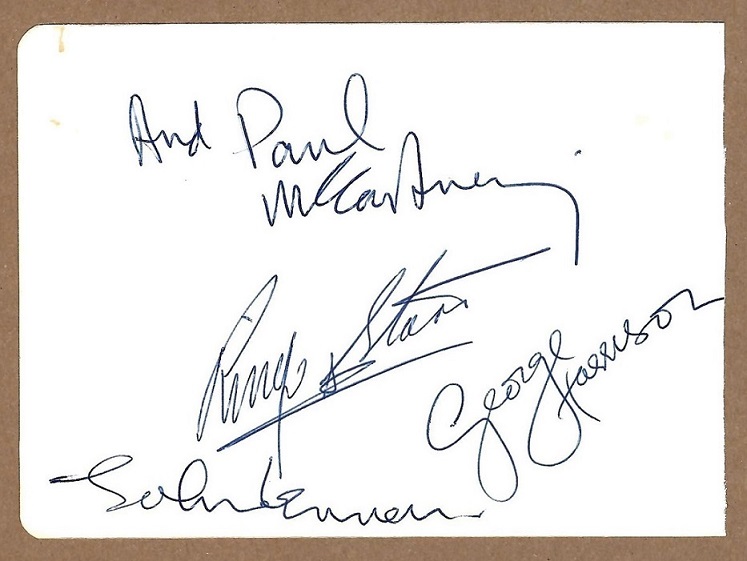 And Paul
McCartney
Ringo Starr
George
Harrison
John Lennon